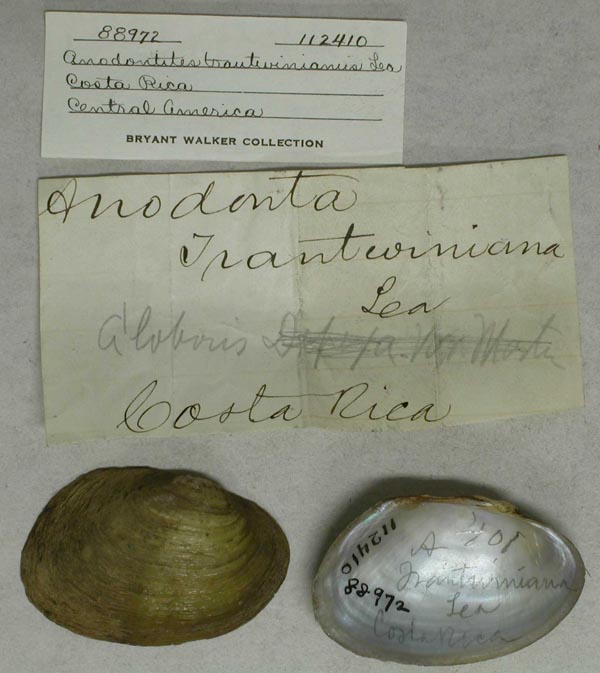 88972 112410
Anodontites trautwinianus Lea
Costa Rica
Central America
BRYANT WALKER COLLECTION
Anodonta
Trantwiniana
Lea
Costa Rica
112410
88972
A
Trantwiniana
Lea
Costa Rica